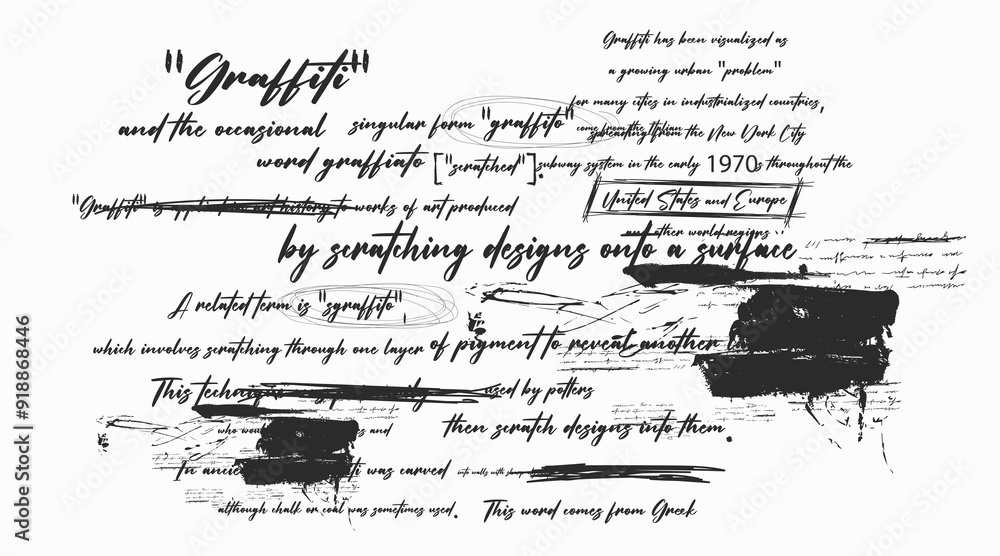 "Graffiti"
and the occasional singular form "graffito" come from the Italian
word graffiato ["scratched"].
"Graffiti" is applied in art history to works of art produced
by scratching designs onto a surface.
A related term is "sgraffito",
which involves scratching through one layer of pigment to reveal another
This technique used by potters
who and then scratch designs into them.
In was carved into walls with
although chalk or coal was sometimes used. This word comes from Greek
Graffiti has been visualized as
a growing urban "problem"
for many cities in industrialized countries,
spreading from the New York City
subway system in the early 1970s throughout the
United States and Europe
and other world regions
Adobe Stock | #918868446